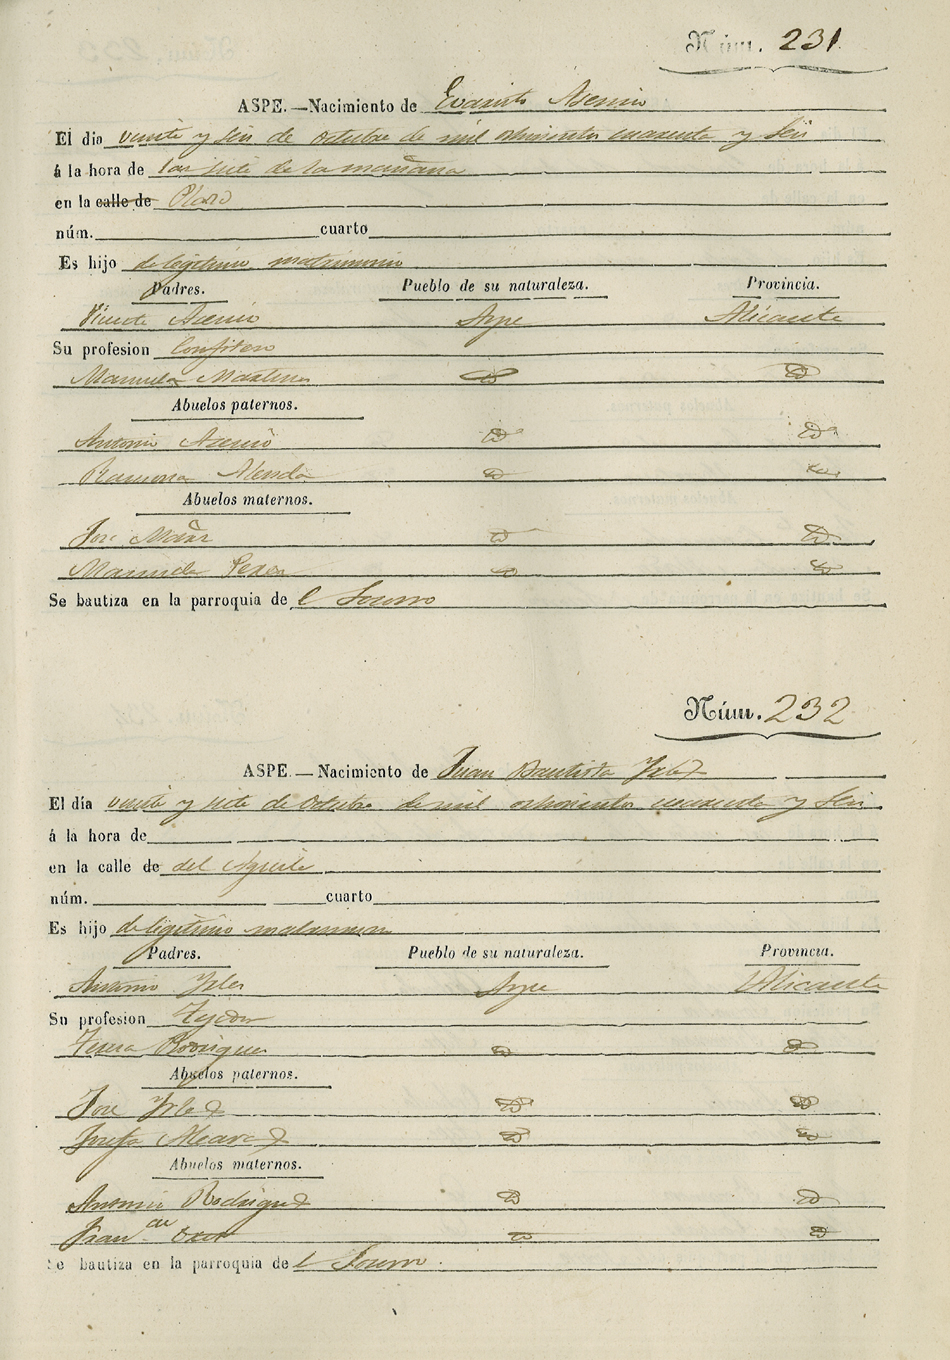 Núm. 231
ASPE.—Nacimiento de Evaristo Asensio
El dia veinte y seis de Octubre de mil ochocientos cuarenta y seis
á la hora de las siete de la mañana
en la calle de Plaza
núm. cuarto
Es hijo de legitimo matrimonio
Padres. Pueblo de su naturaleza. Provincia.
Vicente Asensio Aspe Alicante
Su profesion Confitero
Manuela Martinez
Abuelos paternos.
Antonio Asensio
Ramona Alenda
Abuelos maternos.
José
Manuela Perez
Se bautiza en la parroquia de l Socorro
Núm. 232
ASPE.—Nacimiento de Juan Bautista
El día veinte y siete de Octubre de mil ochocientos cuarenta y seis
á la hora de
en la calle de del Aguila
núm. cuarto
Es hijo de legitimo
Padres. Pueblo de su naturaleza. Provincia.
Antonio Aspe Alicante
Su profesion
Teresa Rodriguez
Abuelos paternos.
José
Josefa
Abuelos maternos.
Antonio Rodriguez
Se bautiza en la parroquia de l Socorro